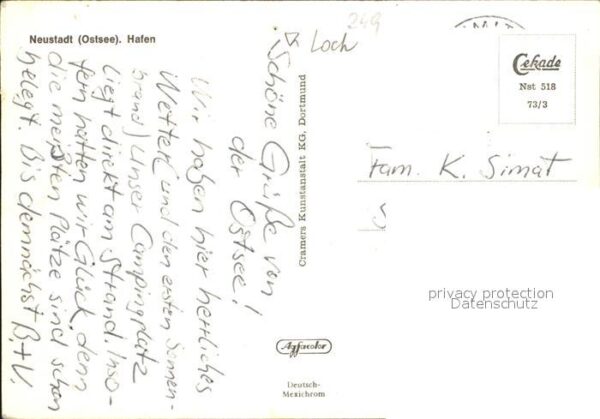 Neustadt (Ostsee). Hafen
249
Loch
Schöne Grüße von
der Ostsee!
Wir haben hier herrliches
Wetter (und den ersten Sonnen-
brand) Unser Campingplatz
liegt direkt am Strand. Inso-
fern hatten wir Glück, denn
die meisten Plätze sind schon
belegt. Bis demnächst B.+V.
Cramers Kunstanstalt KG, Dortmund
Agfacolor
Deutsch-
Mexichrom
Cekade
Nst 518
73/3
Fam. K. Simat
S
privacy protection
Datenschutz